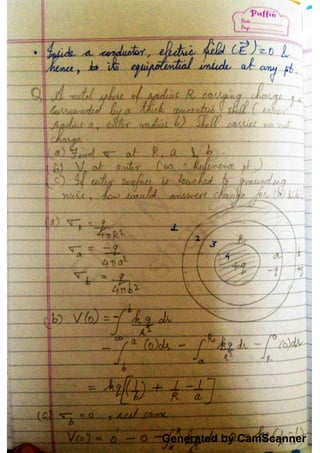 Puffin
Date
Page
• Inside a conductor, electric field (E⃗) = 0 &
hence, to its equipotential inside at any pt.
Q. A metal sphere of radius R carrying charge q is
surrounded by a thick concentric shell (inner
radius a, outer radius b). Shell carries no net
charge.
(a) Find σ at R, a & b.
(b) V at center (∞ = Reference pt)
(c) If outer surface is touched to grounding
wire, how would answers change for (a)
(a) σR = q/4πR²
σa = -q/4πa²
σb = q/4πb²
1 2 3 4 R +q a -q b +q
(b) V(0) = -∫∞^b kq/r² dr
- ∫b^a (0)dr - ∫a^R kq/r² dr - ∫R^0 (0)dr
= kq[(1/b) + 1/R - 1/a]
(c) σb = 0, rest same.
V(0) = 0 - 0 -
Generated by CamScanner